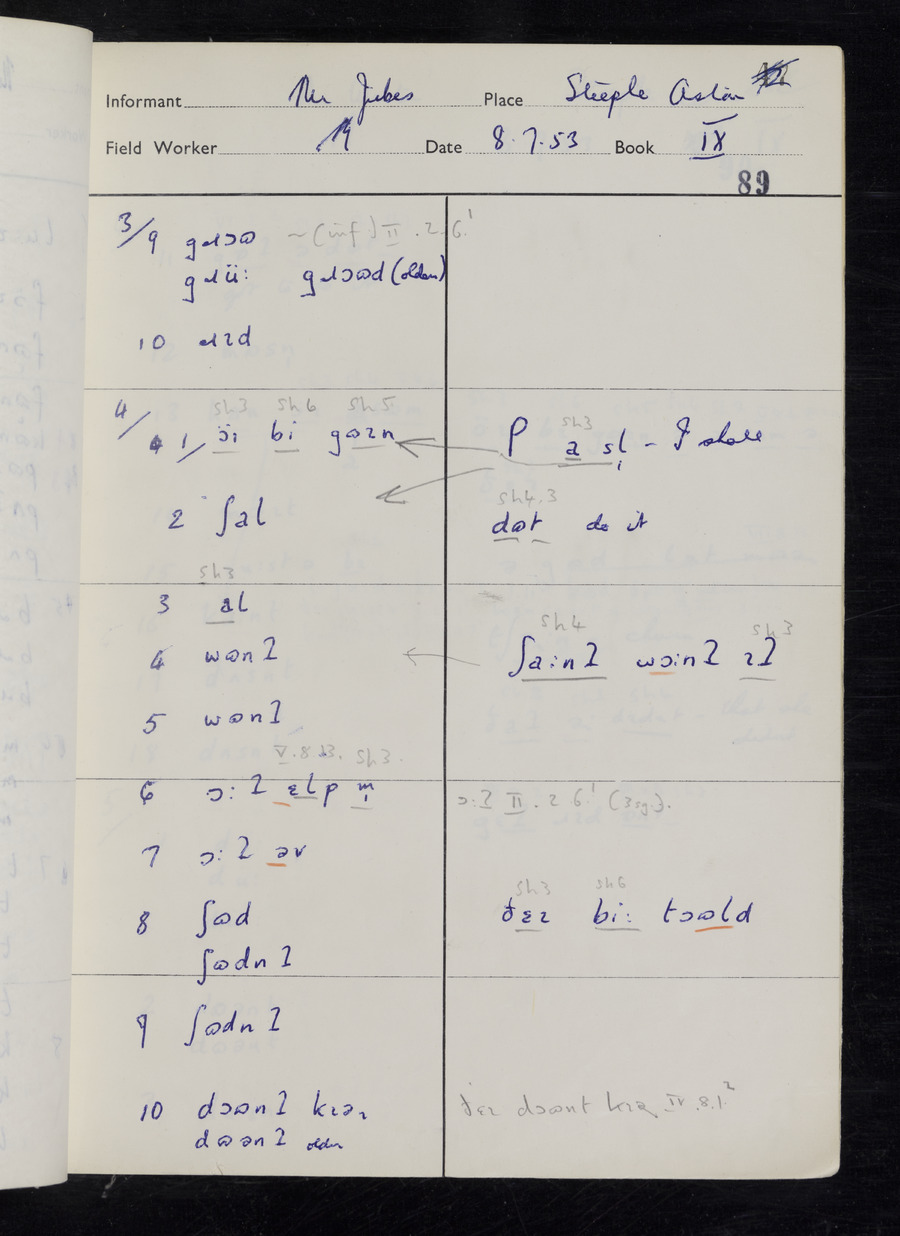 Informant Mr Jukes Place Steeple Aston
Field Worker Date 8.7.53 Book IX
89
3/9 gɹɔʊ ~ (inf) II.2.6.¹
gɹü: gɹɔʊd (older)
10 ɹɪd
4/
sh3 sh6 sh5
1/ ɔ̈ɪ bi gʊɪn P sh3 a sl̩ - I shall
sh4.3
2 ʃal dʊt do it
sh3
3 al
sh4 sh3
4 wʊnʔ ʃaɪnʔ wɔɪnʔ ɪʔ
5 wʊnʔ
V.8.13. sh3.
6 ɔ:ʔ ɛlp m̩ ɔ:ʔ II.2.6.¹ (3sg.).
7 ɔ:ʔ əv
sh3 sh6
8 ʃʊd ðɛɪ bi: tɔʊld
ʃʊdnʔ
9 ʃʊdnʔ
10 dɔʊnʔ kɪəɹ ðɛɪ dɔʊnt kɪə IV.8.1.²
dʊənʔ older